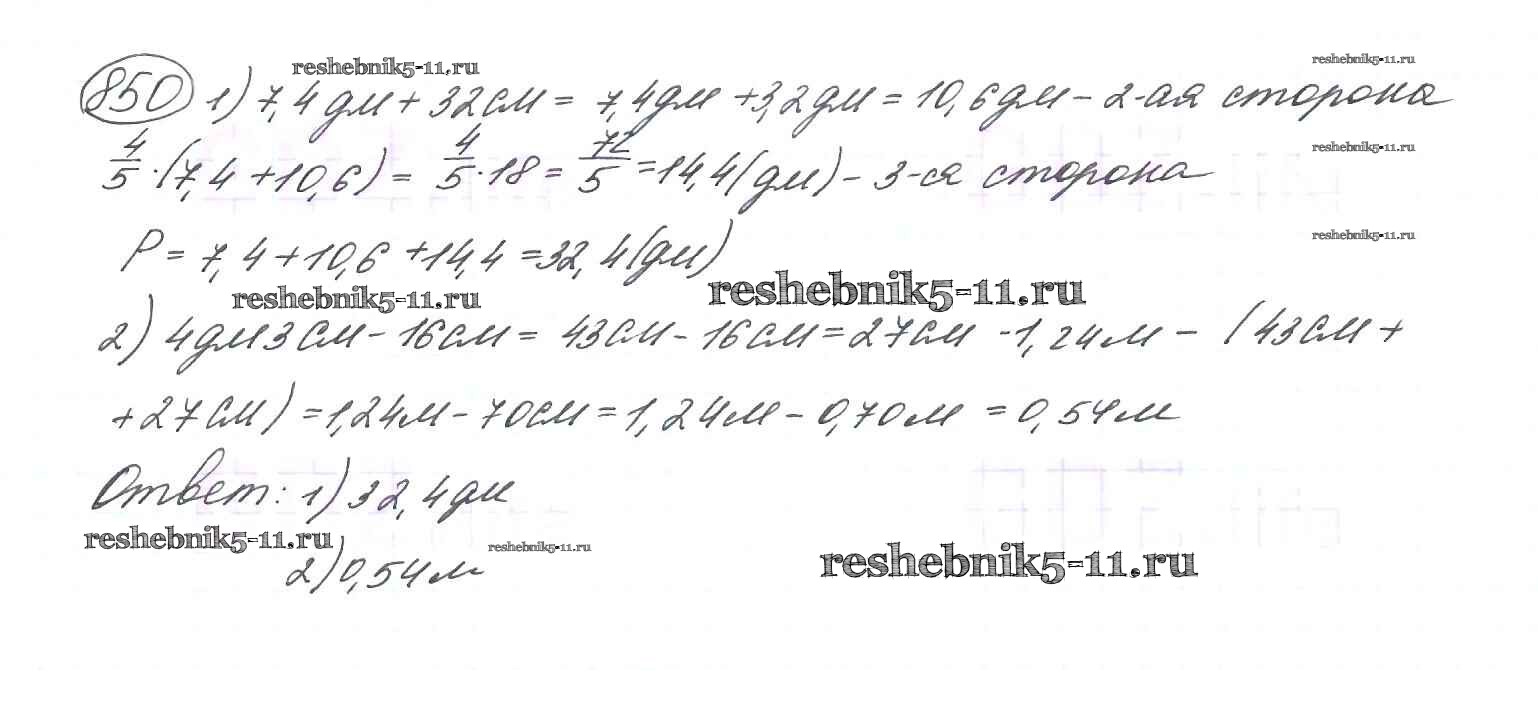 reshebnik5-11.ru
reshebnik5-11.ru
850 1) 7,4 дм + 32 см = 7,4 дм + 3,2 дм = 10,6 дм - 2-ая сторона
4/5 · (7,4 + 10,6) = 4/5 · 18 = 72/5 = 14,4 (дм) - 3-ся сторона
reshebnik5-11.ru
P = 7,4 + 10,6 + 14,4 = 32,4 (дм)
reshebnik5-11.ru
reshebnik5-11.ru
reshebnik5-11.ru
2) 4 дм 3 см - 16 см = 43 см - 16 см = 27 см - 1,24 м - (43 см +
+ 27 см) = 1,24 м - 70 см = 1,24 м - 0,70 м = 0,54 м
Ответ: 1) 32,4 дм
reshebnik5-11.ru
reshebnik5-11.ru
reshebnik5-11.ru
2) 0,54 м